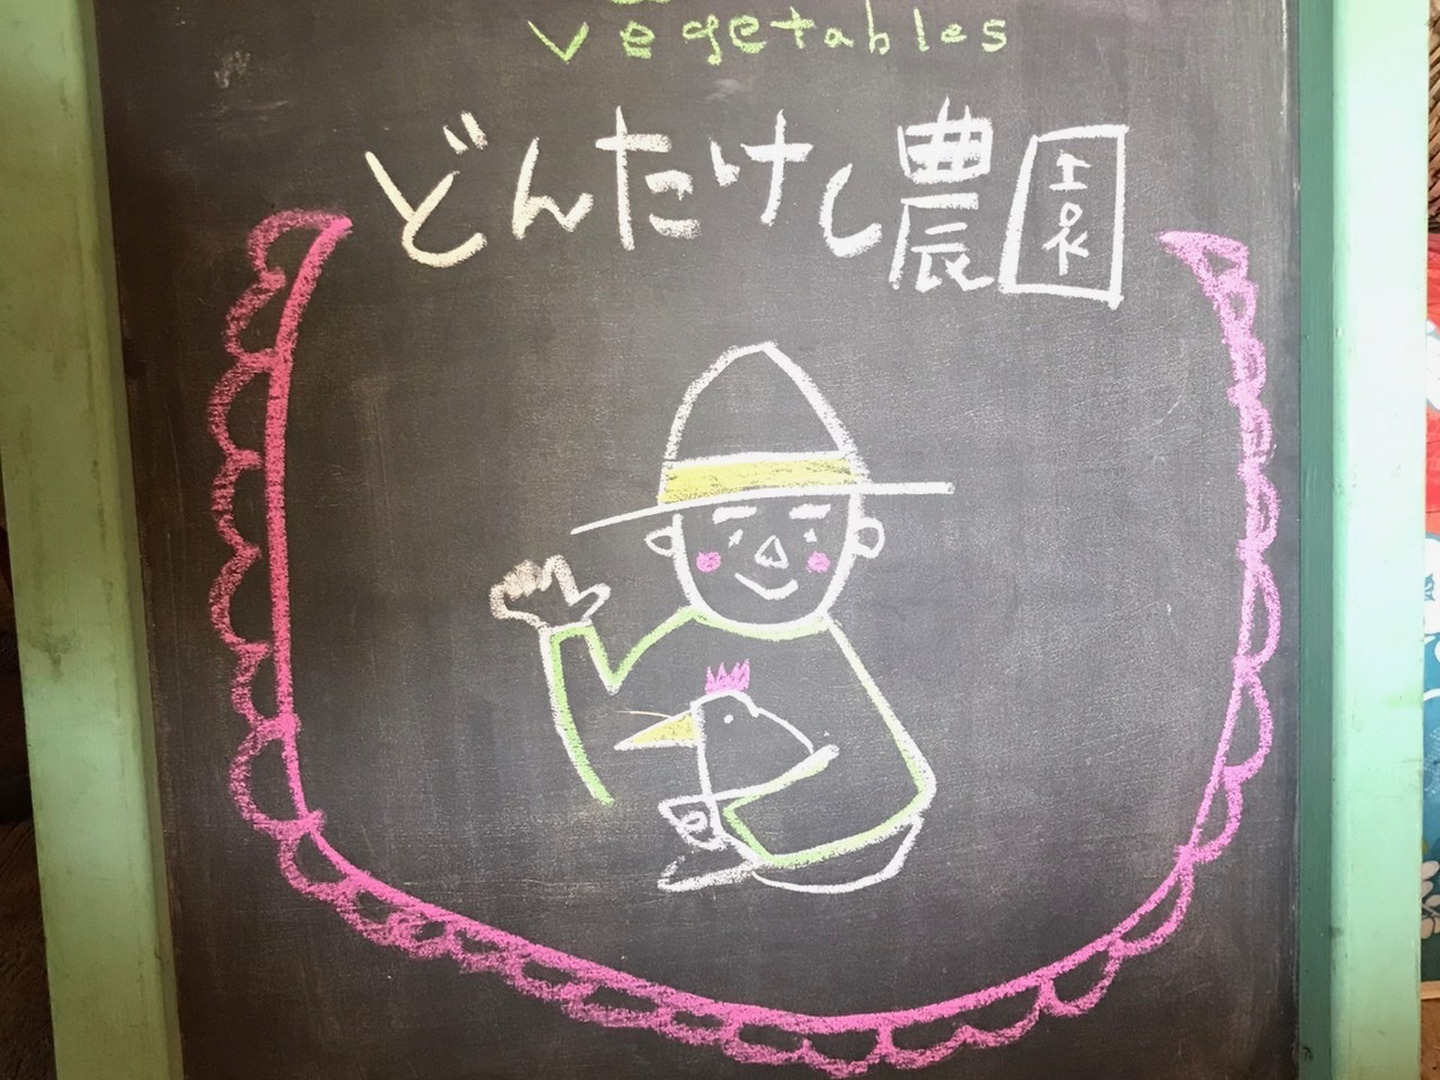 vegetables
どんたけし農園